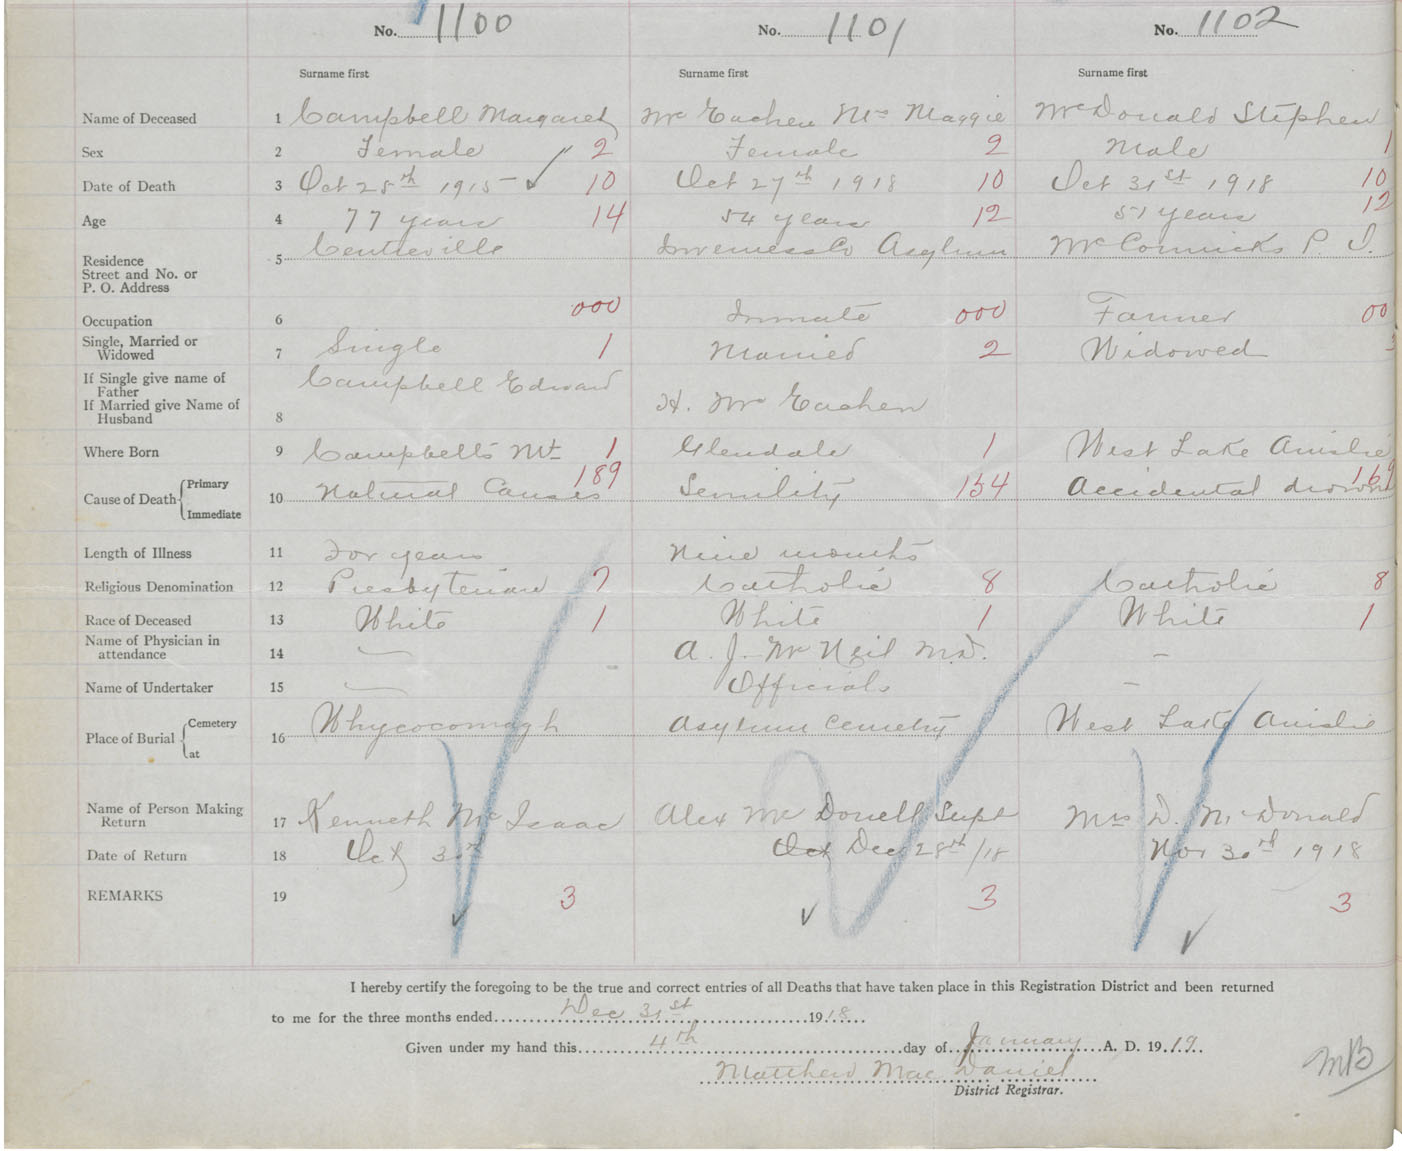 No. 1100 No. 1101 No. 1102
Surname first Surname first Surname first
Name of Deceased 1 Campbell Margaret Mc Eachen Mrs Maggie McDonald Stephen
Sex 2 Female 2 Female 2 Male 1
Date of Death 3 Oct 28th 1915 10 Oct 27th 1918 10 Oct 31st 1918 10
Age 4 77 years 14 54 years 12 51 years 12
Residence
Street and No. or
P. O. Address
5 Centreville Inverness Co Asylum McCormicks P. O.
Occupation 6 000 Inmate 000 Farmer 00
Single, Married or
Widowed
7 Single 1 Married 2 Widowed
If Single give name of
Father
If Married give Name of
Husband
8 Campbell Edward H. Mc Eachen
Where Born 9 Campbells Mt 1 Glendale 1 West Lake Ainslie
Cause of Death { Primary
Immediate
10 Natural Causes 189 Senility 154 Accidental drown 169
Length of Illness 11 For years Nine months
Religious Denomination 12 Presbyterian 7 Catholic 8 Catholic 8
Race of Deceased 13 White 1 White 1 White 1
Name of Physician in
attendance
14 — A. J. McNeil M.D. —
Name of Undertaker 15 — Officials —
Place of Burial { Cemetery
at
16 Whycocomagh Asylum Cemetry West Lake Ainslie
Name of Person Making
Return
17 Kenneth McIsaac Alex McDonell Supt Mrs D. McDonald
Date of Return 18 Oct 30th Oct Dec 28th /18 Nov 30th 1918
REMARKS 19 3 3 3
I hereby certify the foregoing to be the true and correct entries of all Deaths that have taken place in this Registration District and been returned
to me for the three months ended Dec 31st 1918
Given under my hand this 4th day of January A. D. 1919.
Matthew MacDaniel
District Registrar.
MB